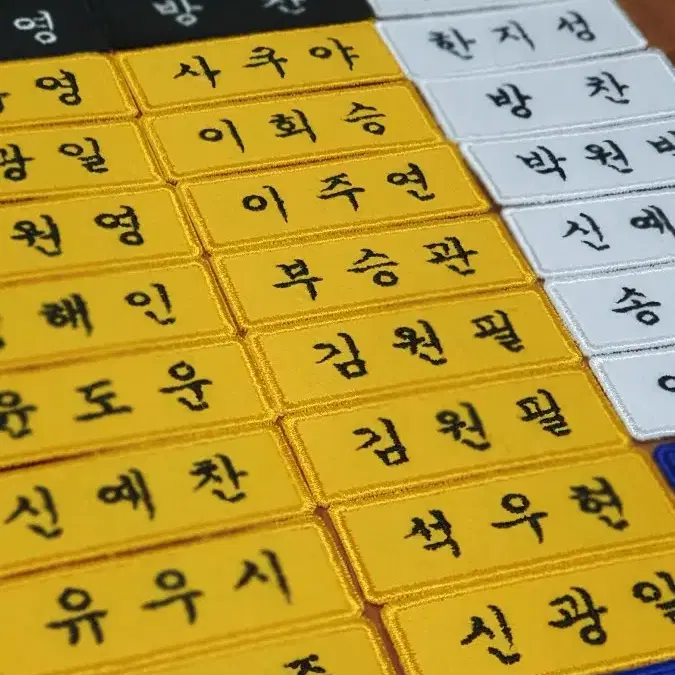 영 방 찬
영 사 쿠 야 한 지 성
광 일 이 회 승 방 찬
원 영 이 주 연 박 원
해 인 부 승 관 신 예
윤 도 운 김 원 필 송
신 예 찬 김 원 필
유 우 시 석 우 현
신 광 일